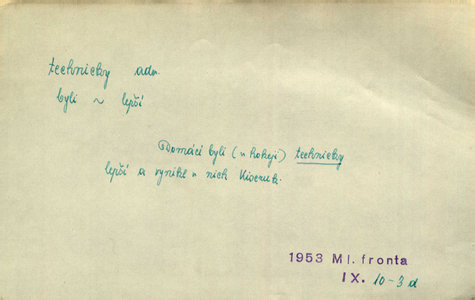 technicky adv.
byli ~ lepší
Domácí byli (v hokeji) technicky
lepší a vynikl u nich
1953 Ml. fronta
IX. 10-3 d